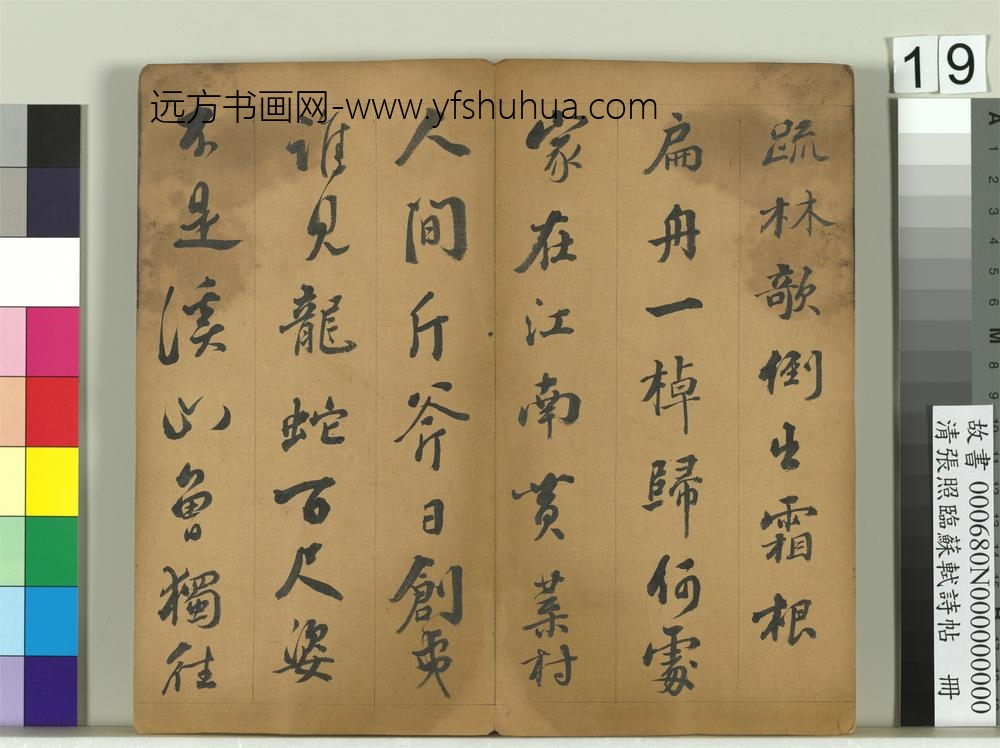 远方书画网-www.yfshuhua.com
19
疏林欹倒出霜根
扁舟一棹歸何處
家在江南黃葉村
人間斤斧日創夷
誰見龍蛇百尺姿
不是溪山曾獨往
故書 000680N000000000
清張照臨蘇軾詩帖 冊